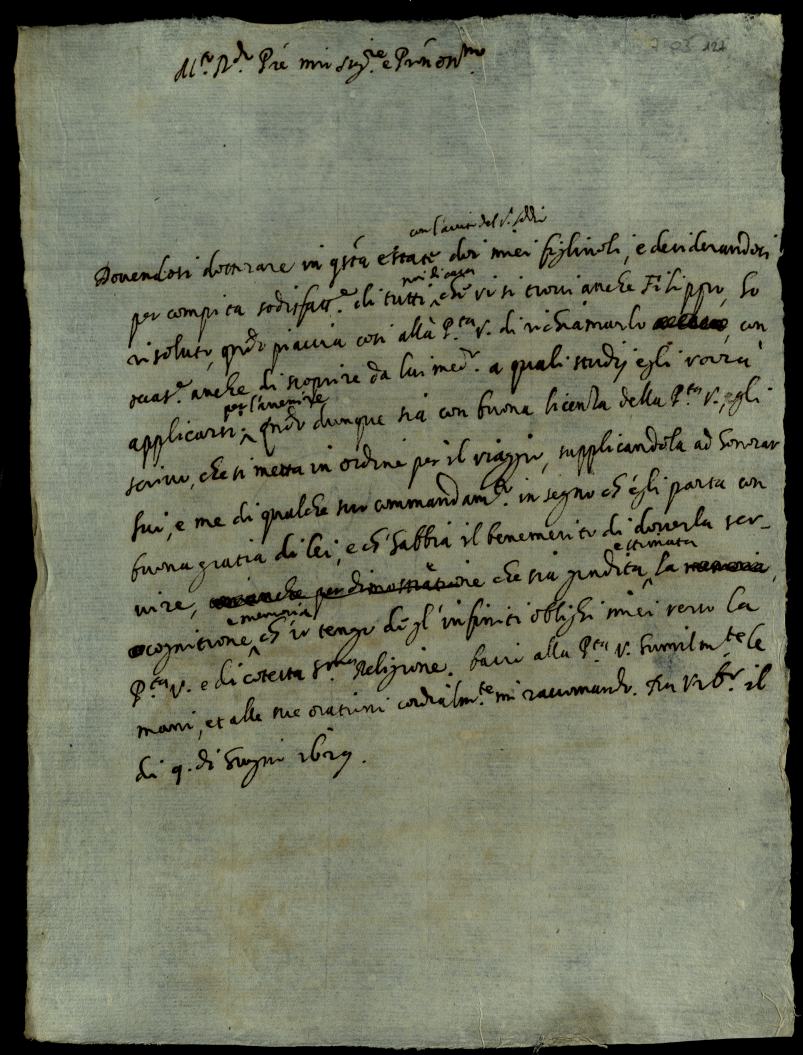 121
M.to R.do P're mio Sig.re e P'ron oss.mo
con l'aiuto del S.r Iddio
Dovendosi dottorare in q'sta estate doi miei figliuoli, e desiderandosi
noi di casa
per compita sodisfatt.e di tutti, ch'e vi si trovi anche Filippo, ho
risoluto, q'n'do piaccia così alla P.tà V. di richiamarlo, con
occas.e anche di scoprire da lui med.o a quali studij egli vorrà
per l'avenire
applicarsi; q'n'do dunque sia con buona licenza della P.tà V., egli
scrivo, che si metta in ordine per il viaggio, supplicandola ad honorar
lui, e me di qualche suo commandam.to in segno ch'egli parta con
buona gratia di lei, e ch'habbia il benemerito di doverla ser-
estimata
vire, anche per dimostratione che sia gradita, la memoria,
e memoria
cognitione, ch'io tengo de gl'infiniti oblighi miei verso la
P.tà V. e di cotesta S.ma Religione. bacio alla P.tà V. humilm.te le
mani, et alle sue orationi cordialm.te mi raccomando. Da Urb.o il
di 9. di Giugno 1629.